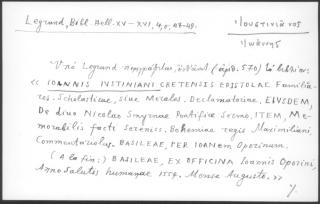 Legrand, Bibl. Hell. XV-XVI, 4,0, 47-48.
Ἰουστινιᾶνος
Ἰωάννης
Ὑπὸ Legrand περιγράφεται, ἐνθ' ἀνωτ. (ἀριθ. 570) τὸ βιβλίον:
« IOANNIS IUSTINIANI CRETENSIS EPISTOLAE Familia-
res. Scholasticae, siue Morales. Declamatoriae. EIVSDEM,
De diuo Nicolao Smyrnae Pontifice Sermo, ITEM, Me-
morabilis facti Sereniss. Bohemiae regis Maximiliani,
Commentariolus. BASILEAE, PER IOANem Oporinum.
(A la fin:) BASILEAE, EX OFFICINA Ioannis Oporini,
Anno Salutis humanae 1554. Mense Augusto. »